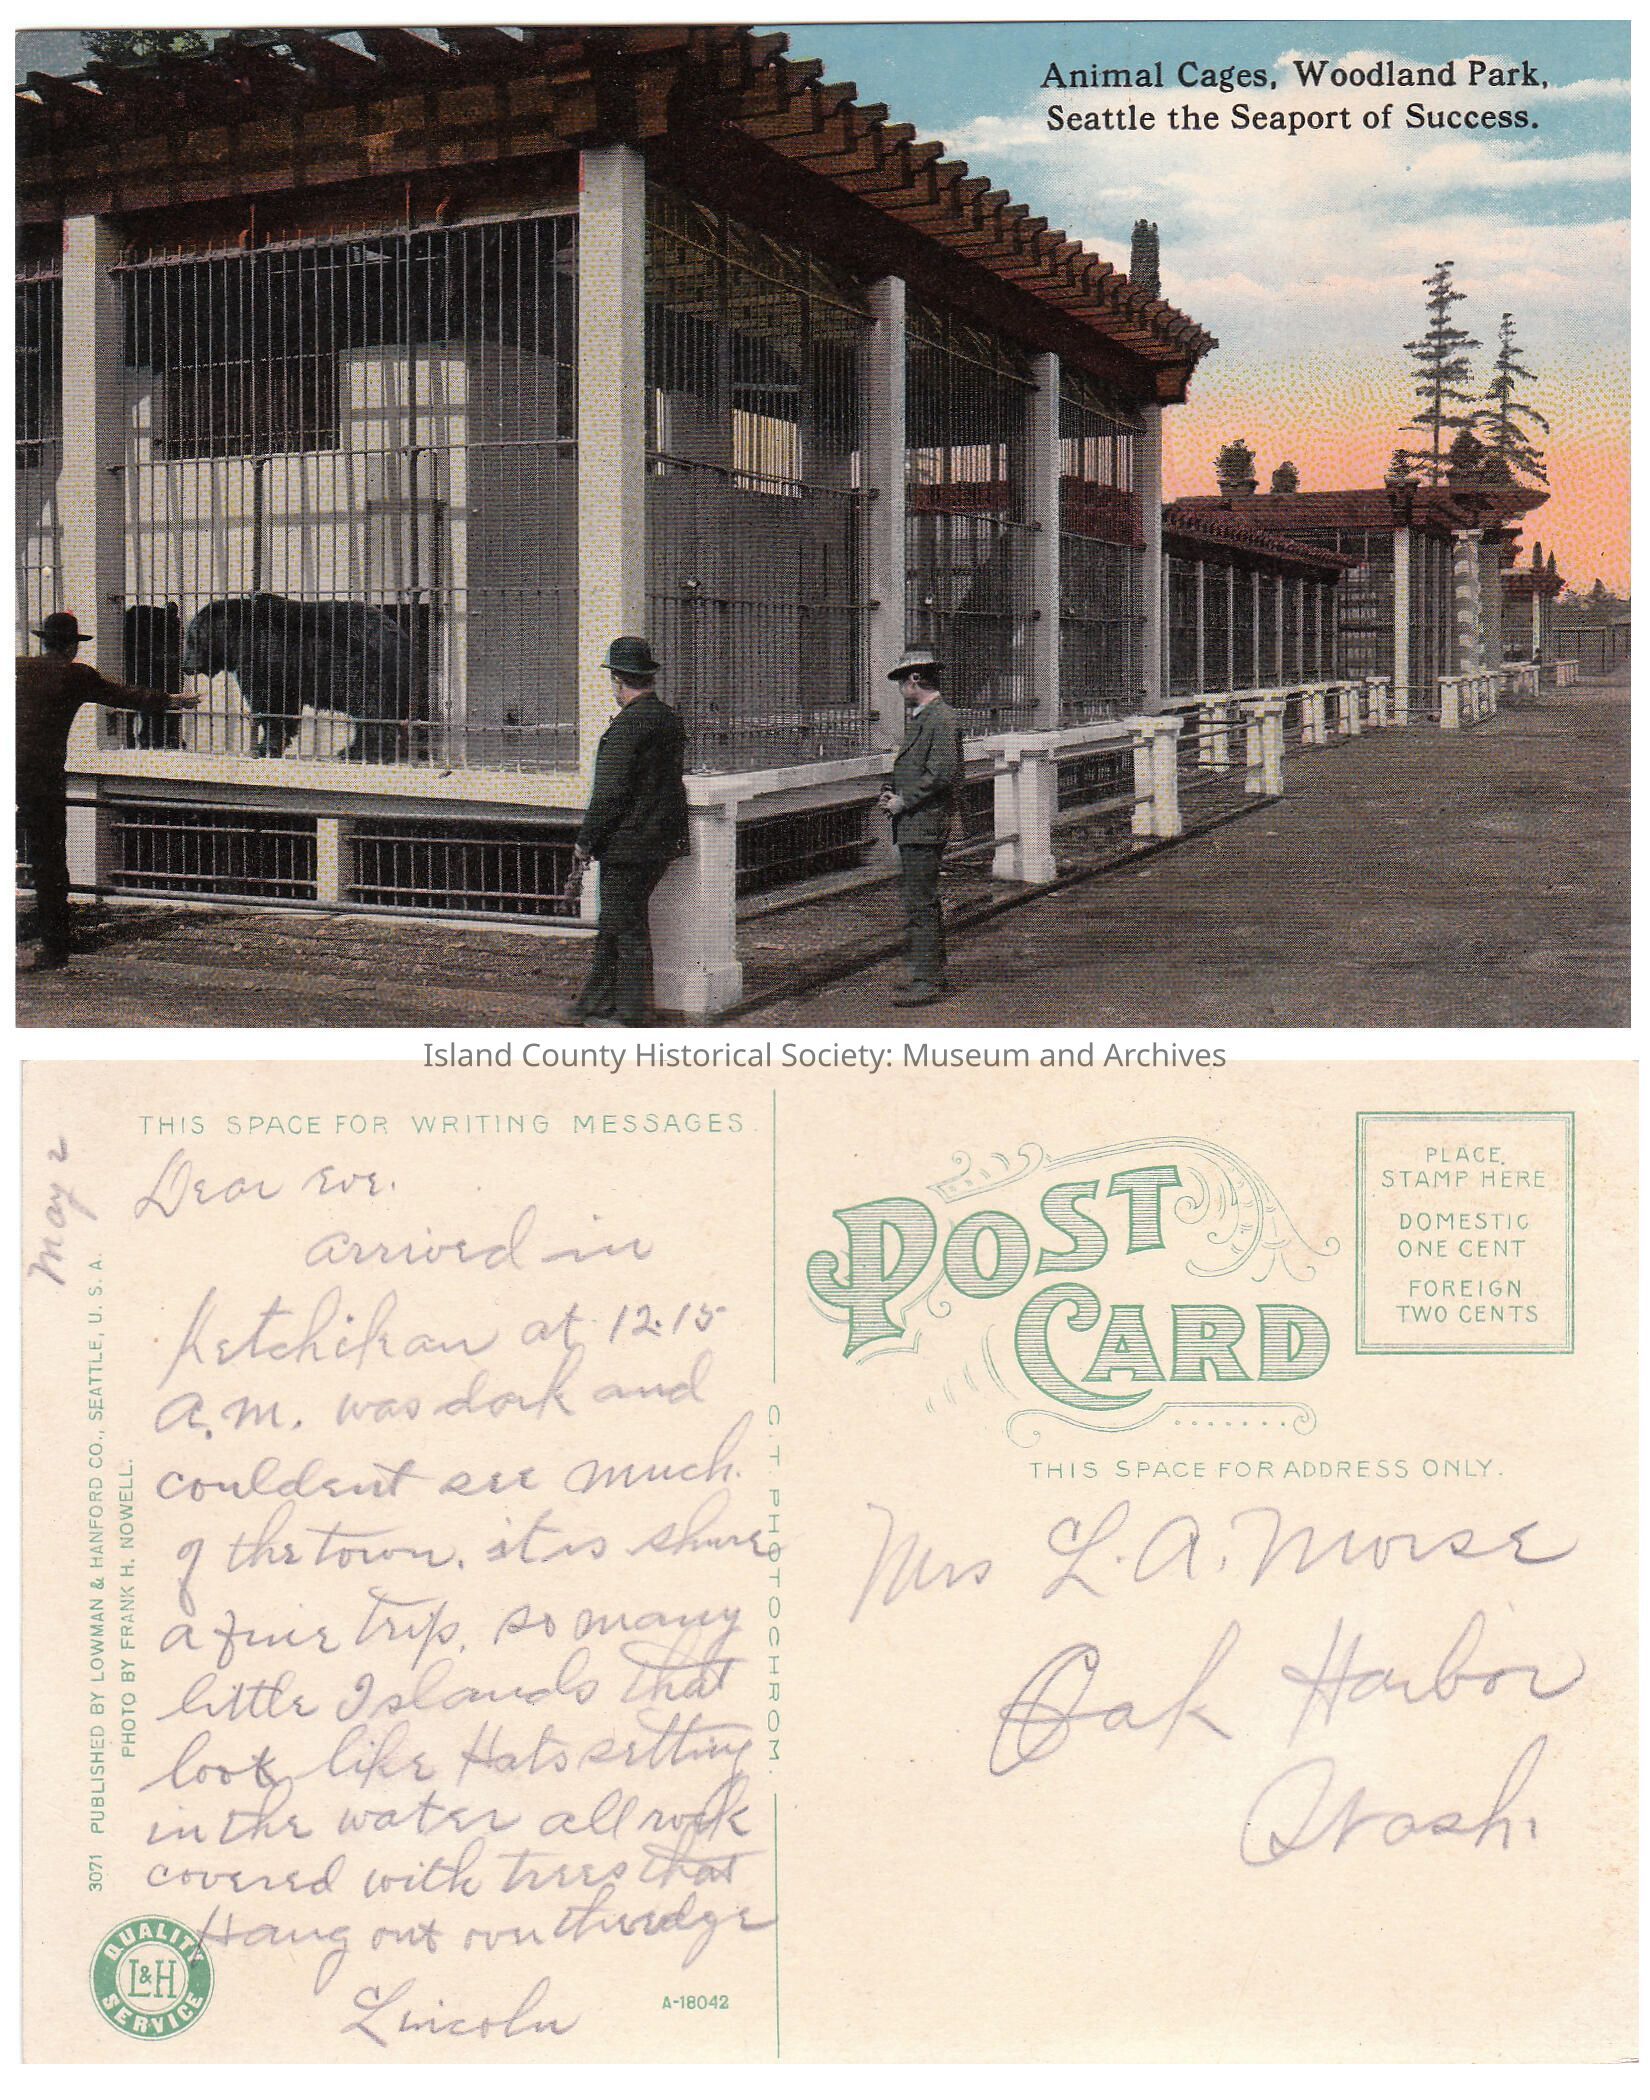 Animal Cages, Woodland Park,
Seattle the Seaport of Success.
Island County Historical Society: Museum and Archives
THIS SPACE FOR WRITING MESSAGES.
May 2
Dear Eve.
arrived in
Ketchikan at 12.15
A.M. was dark and
couldent see much.
of the town. it is shure
a fine trip. so many
little Islands that
look like Hats setting
in the water all rock
covered with trees that
Hang out over the edge
Lincoln
3071 PUBLISHED BY LOWMAN & HANFORD CO., SEATTLE, U. S. A.
PHOTO BY FRANK H. NOWELL.
QUALITY
L&H
SERVICE
A-18042
C. T. PHOTOCHROM.
POST
CARD
PLACE
STAMP HERE
DOMESTIC
ONE CENT
FOREIGN
TWO CENTS
THIS SPACE FOR ADDRESS ONLY.
Mrs L. A. Morse
Oak Harbor
Wash.